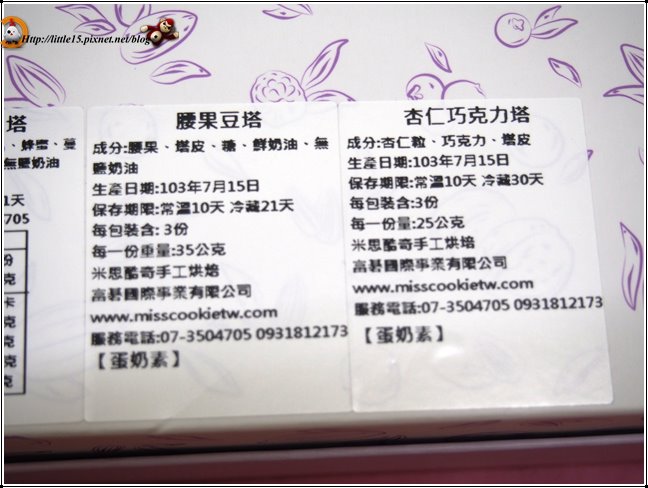 Http://little15.pixnet.net/blog
塔
、蜂蜜、蔓
無鹽奶油
1天
705
份
克
卡
克
克
克
克
腰果豆塔
成分:腰果、塔皮、糖、鮮奶油、無
鹽奶油
生產日期:103年7月15日
保存期限:常溫10天 冷藏21天
每包裝含: 3份
每一份重量:35公克
米思酷奇手工烘焙
富碁國際事業有限公司
www.misscookietw.com
服務電話:07-3504705 0931812173
【蛋奶素】
杏仁巧克力塔
成分:杏仁粒、巧克力、塔皮
生產日期:103年7月15日
保存期限:常溫10天 冷藏30天
每包裝含:3份
每一份量:25公克
米思酷奇手工烘焙
富碁國際事業有限公司
www.misscookietw.com
服務電話:07-3504705 0931812173
【蛋奶素】